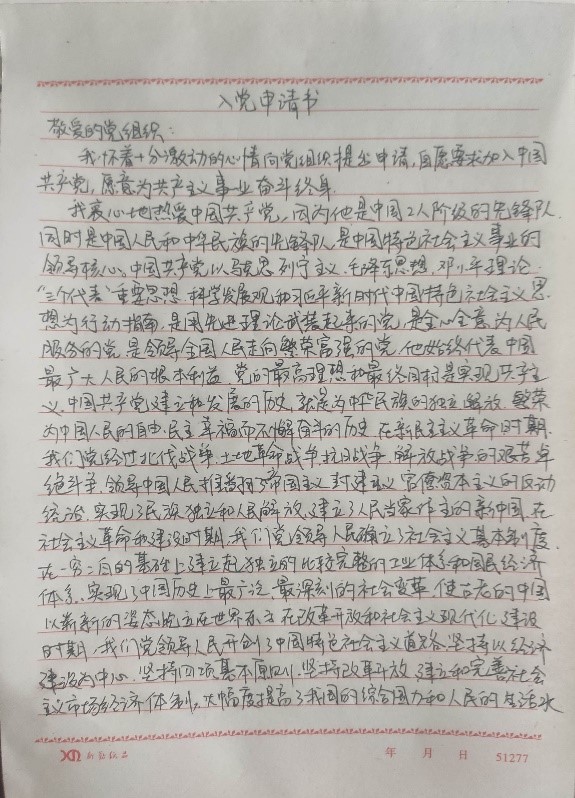 入党申请书
敬爱的党组织：
我怀着十分激动的心情向党组织提出申请，自愿要求加入中国
共产党，愿意为共产主义事业奋斗终身。
我衷心地热爱中国共产党，因为他是中国工人阶级的先锋队，
同时是中国人民和中华民族的先锋队，是中国特色社会主义事业的
领导核心。中国共产党以马克思列宁主义、毛泽东思想、邓小平理论、
“三个代表”重要思想、科学发展观和习近平新时代中国特色社会主义思
想为行动指南，是用先进理论武装起来的党，是全心全意为人民
服务的党，是领导全国人民走向繁荣富强的党。他始终代表中国
最广大人民的根本利益，党的最高理想和最终目标是实现共产主
义。中国共产党建立和发展的历史，就是为中华民族的独立、解放、繁荣，
为中国人民的自由、民主、幸福而不懈奋斗的历史。在新民主主义革命时期，
我们党经过北伐战争、土地革命战争、抗日战争、解放战争的艰苦卓
绝斗争，领导中国人民推翻了帝国主义、封建主义、官僚资本主义的反动
统治，实现了民族独立和人民解放，建立了人民当家作主的新中国。在
社会主义革命和建设时期，我们党领导人民确立了社会主义基本制度，
在一穷二白的基础上建立起独立的比较完整的工业体系和国民经济
体系，实现了中国历史上最广泛、最深刻的社会变革，使古老的中国
以崭新的姿态屹立在世界东方。在改革开放和社会主义现代化建设
时期，我们党领导人民开创了中国特色社会主义道路，坚持以经济
建设为中心、坚持四项基本原则、坚持改革开放，建立和完善社会
主义市场经济体制，大幅度提高了我国的综合国力和人民的生活水
年 月 日 51277